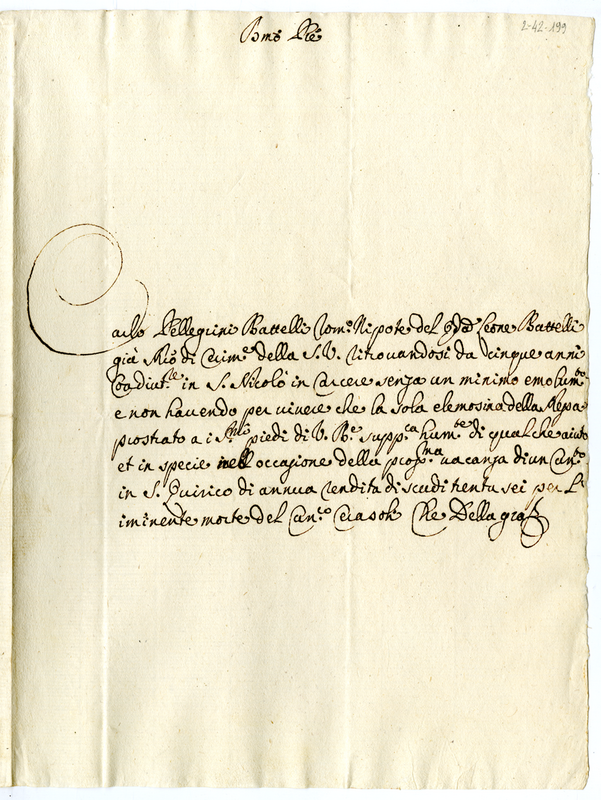 2-42-199
Bmō Pre
Carlo Pellegrini Battelli Rom.º Nipote del qdā Leone Battelli
già Miō di Cerim.e della S.V. ritrovandosi da cinque anni
Coadiut.re in S. Nicolò in Carcere senza un minimo emolum.to
e non havendo per vivere che la sola elemosina della Messa
prostrato a i S.mi piedi di V. B.e supp.ca hum.te di qualche aiuto
et in specie nell occasione della pross.ma vacanza di un Can.to
in S. Quirico di annua rendita di scudi trenta sei per l
iminente morte del Can.co Che Della gra